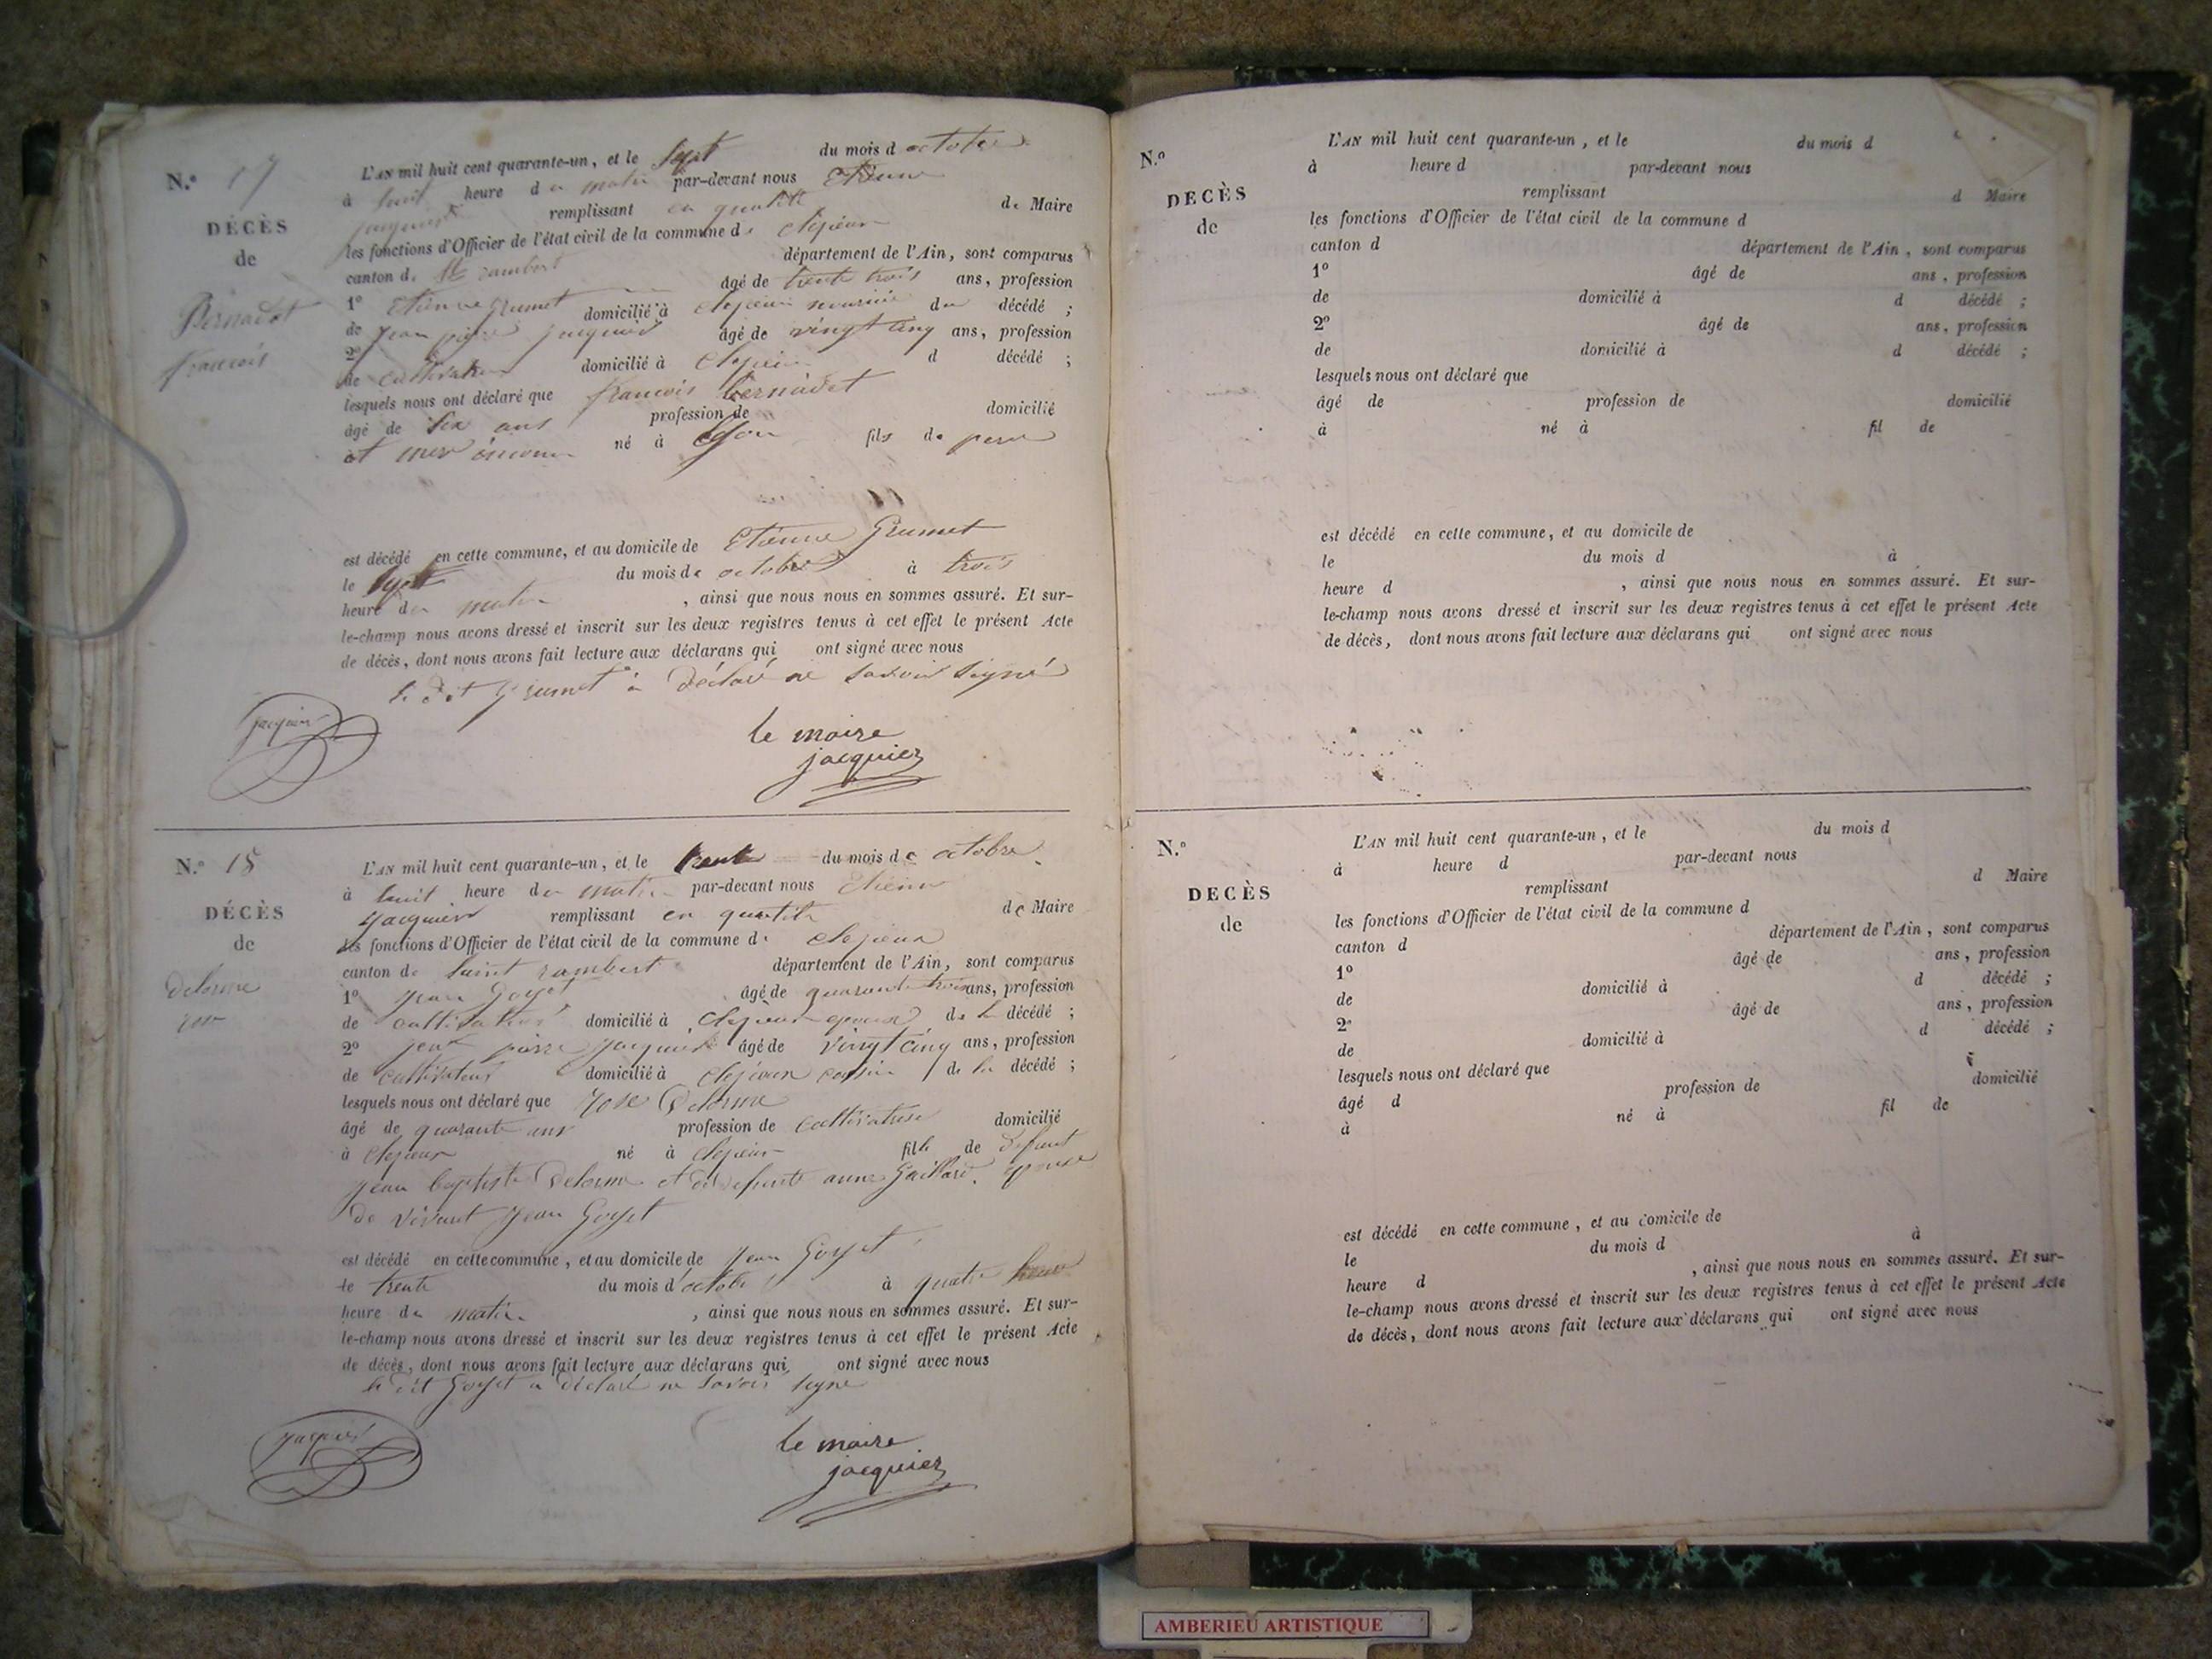 N.° 17
DÉCÈS
de
Bernadet
francois
L'AN mil huit cent quarante-un, et le Sept du mois d octobre
à huit heure du matin par-devant nous Etienne
jacquier remplissant en qualité de Maire
les fonctions d'Officier de l'état civil de la commune de clejeux
canton de St rambert département de l'Ain, sont comparus
1° Etienne Grumet âgé de trente trois ans, profession
de domicilié à clejeux du décédé ;
2° jean pierre jacquier âgé de vingt cinq ans, profession
de cultivateur domicilié à clejeux d décédé ;
lesquels nous ont déclaré que francois bernadet
âgé de six ans profession de domicilié
à né à Lyon fils de pere
et mer inconu
est décédé en cette commune, et au domicile de Etienne Grumet
le sept du mois de octobre à trois
heure du matin , ainsi que nous nous en sommes assuré. Et sur-
le-champ nous avons dressé et inscrit sur les deux registres tenus à cet effet le présent Acte
de décès, dont nous avons fait lecture aux déclarans qui ont signé avec nous
le dit Grumet a déclaré ne savoir signé
jacquier
le maire
jacquier
N.° 18
DÉCÈS
de
Delorme
L'AN mil huit cent quarante-un, et le trente du mois de octobre
à huit heure du matin par-devant nous Etienne
jacquier remplissant en qualité de Maire
les fonctions d'Officier de l'état civil de la commune de clejeux
canton de Saint rambert département de l'Ain, sont comparus
1° jean Goyet âgé de quarante trois ans, profession
de cultivateur domicilié à clejeux epoux de la décédé ;
2° jean pierre jacquier âgé de vingt cinq ans, profession
de cultivateur domicilié à clejeux cousin de la décédé ;
lesquels nous ont déclaré que Rose Delorme
âgé de quarante ans profession de cultivatrise domicilié
à clejeux né à clejeux fille de défunt
jean baptiste Delorme et de defunte anne Gaillard. epouse
de vivant jean Goyet
est décédé en cette commune, et au domicile de jean Goyet
le trente du mois d'octobre à quatre heure
heure du matin , ainsi que nous nous en sommes assuré. Et sur-
le-champ nous avons dressé et inscrit sur les deux registres tenus à cet effet le présent Acte
de décès, dont nous avons fait lecture aux déclarans qui ont signé avec nous
le dit Goyet a déclaré ne savoir signé
jacquier
le maire
jacquier
N.°
DECÈS
de
L'AN mil huit cent quarante-un, et le du mois d
à heure d par-devant nous
remplissant d Maire
les fonctions d'Officier de l'état civil de la commune d
canton d département de l'Ain, sont comparus
1° âgé de ans, profession
de domicilié à d décédé ;
2° âgé de ans, profession
de domicilié à d décédé ;
lesquels nous ont déclaré que
âgé de profession de domicilié
à né à fil de
est décédé en cette commune, et au domicile de
le du mois d à
heure d , ainsi que nous nous en sommes assuré. Et sur-
le-champ nous avons dressé et inscrit sur les deux registres tenus à cet effet le présent Acte
de décès, dont nous avons fait lecture aux déclarans qui ont signé avec nous
N.°
DECÈS
de
L'AN mil huit cent quarante-un, et le du mois d
à heure d par-devant nous
remplissant d Maire
les fonctions d'Officier de l'état civil de la commune d
canton d département de l'Ain, sont comparus
1° âgé de ans, profession
de domicilié à d décédé ;
2° âgé de ans, profession
de domicilié à d décédé ;
lesquels nous ont déclaré que
âgé d profession de domicilié
à né à fil de
est décédé en cette commune, et au domicile de
le du mois d à
heure d , ainsi que nous nous en sommes assuré. Et sur-
le-champ nous avons dressé et inscrit sur les deux registres tenus à cet effet le présent Acte
de décès, dont nous avons fait lecture aux déclarans qui ont signé avec nous
AMBERIEU ARTISTIQUE